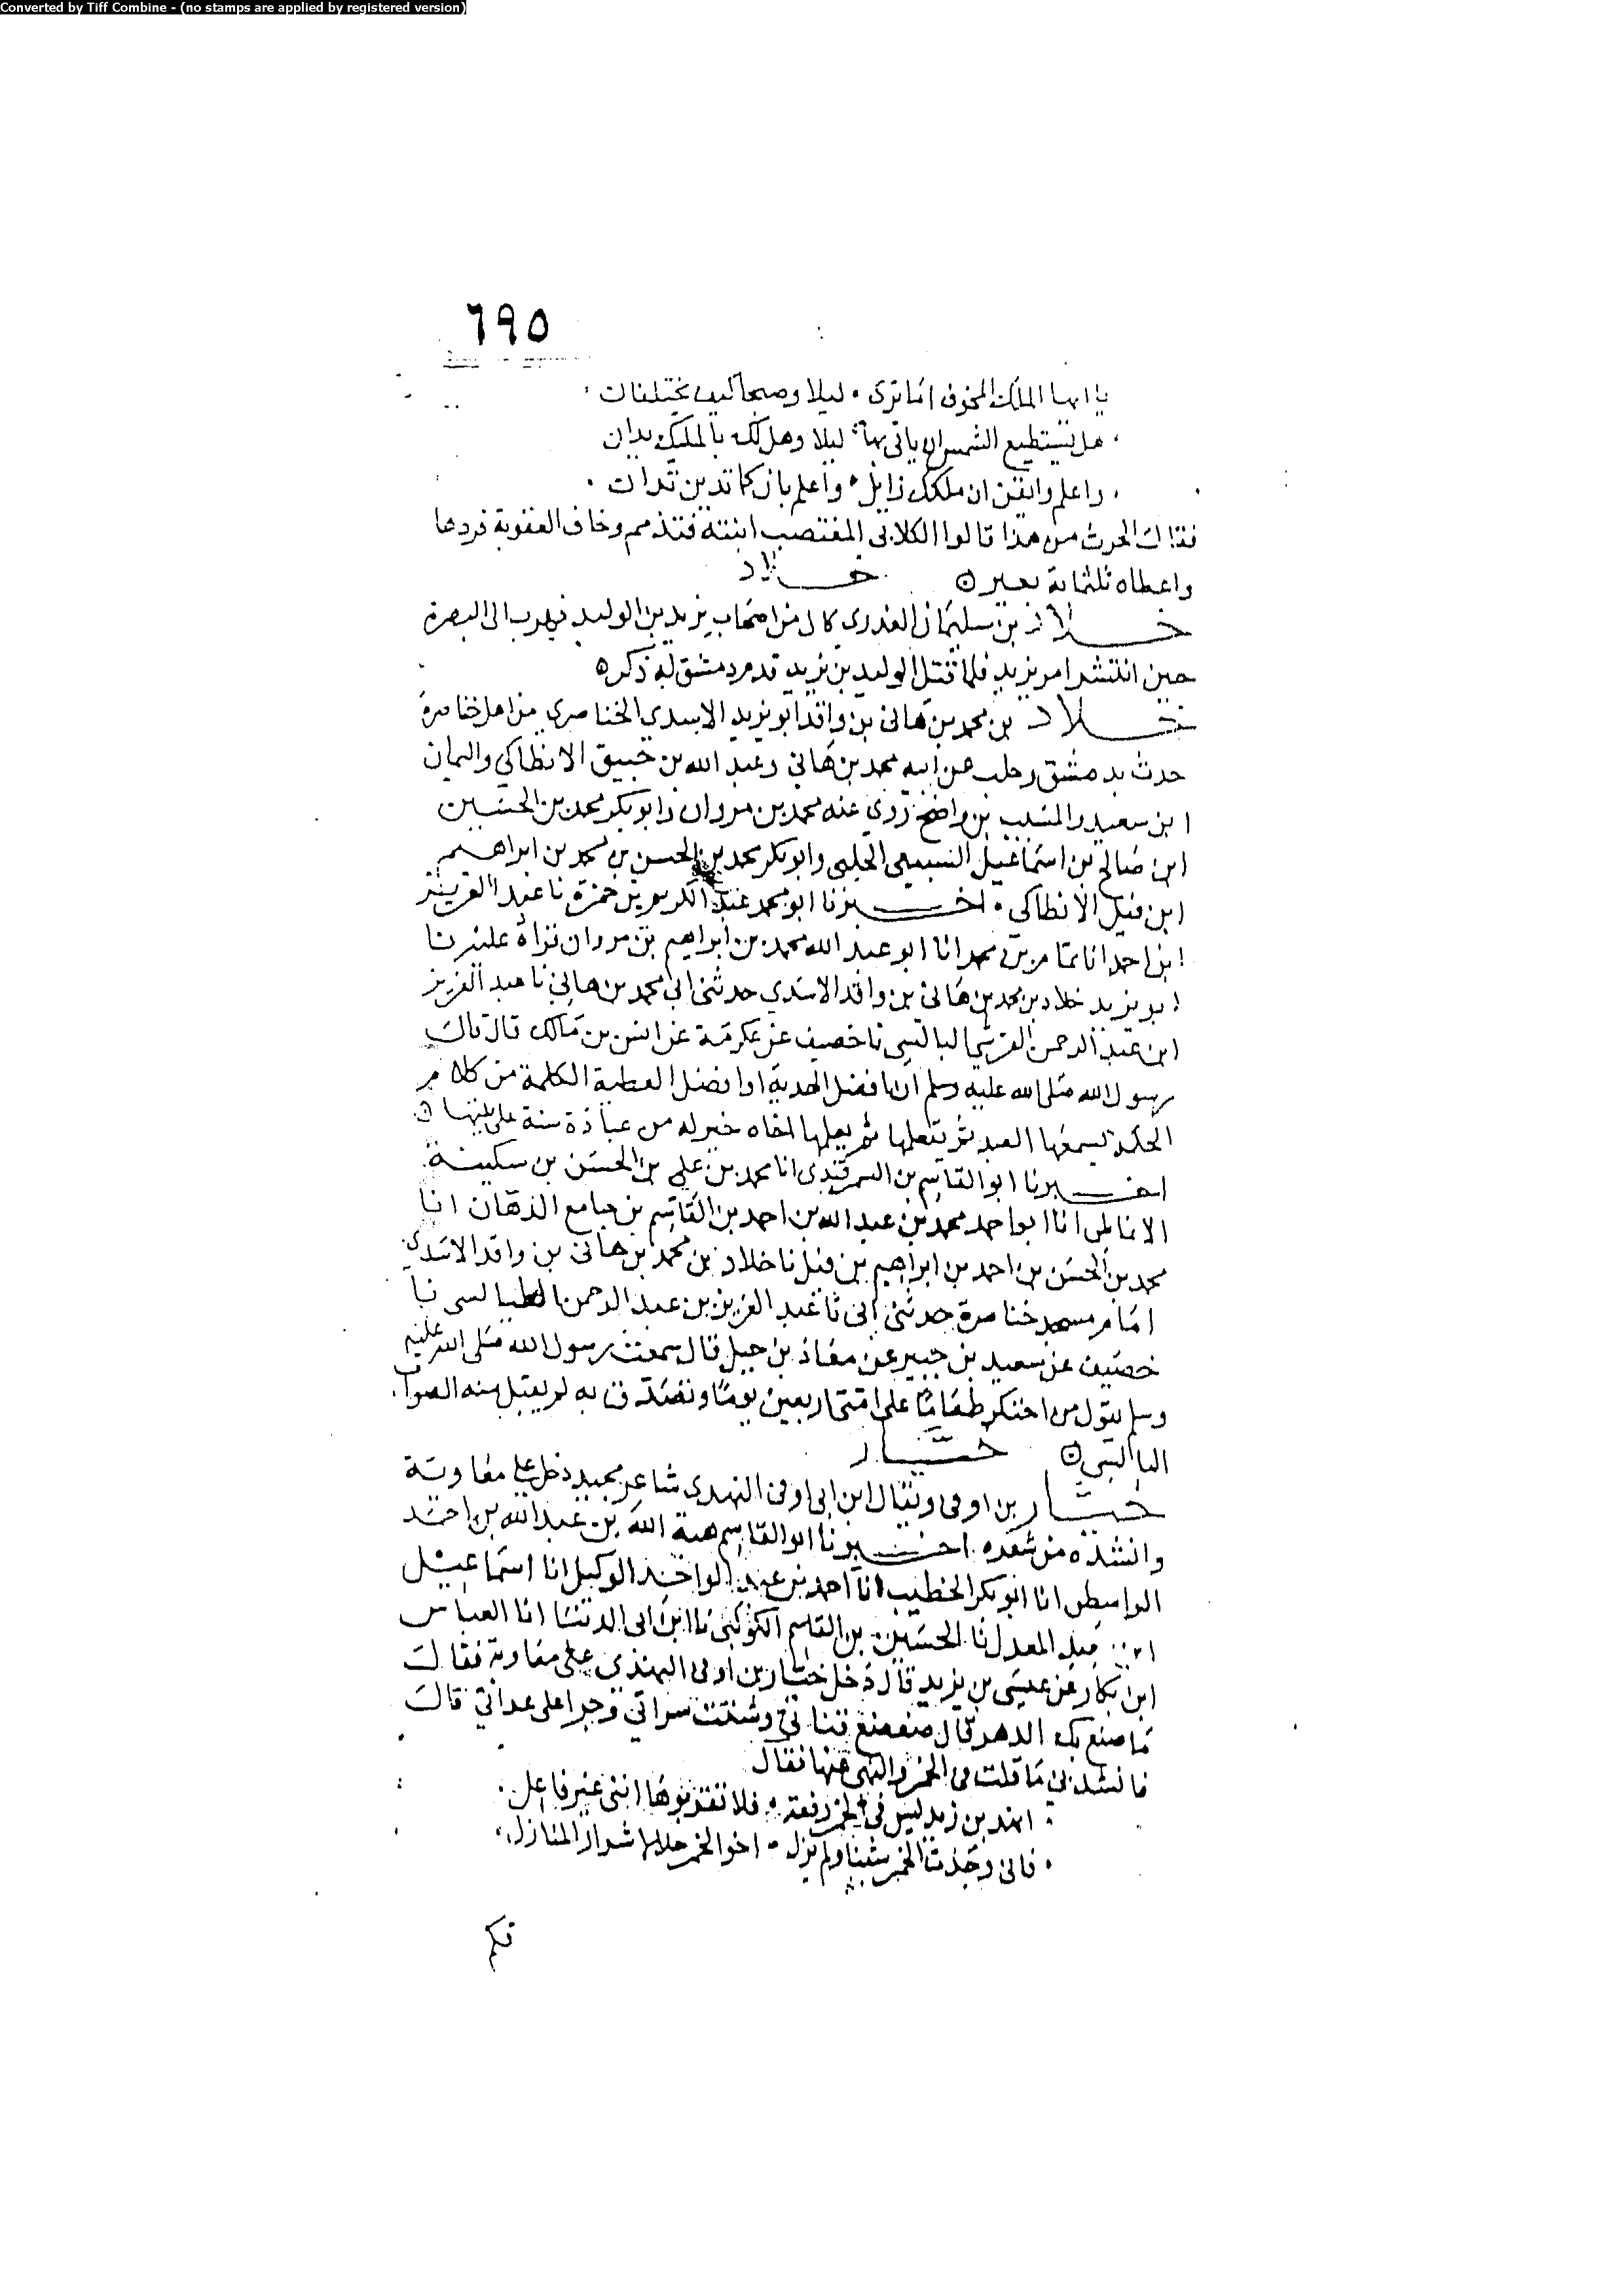 Converted by Tiff Combine - (no stamps are applied by registered version)
٦٩٥
يا ايها الملك المخوف اما ترى • ليلا وصبحا كيف يختلفان
هل تستطيع الشمس ان ياتى بها • ليلا وهل لك بالمليك يدان
واعلم وايقن ان ملكك زايل • واعلم بان كما تدين تدان
فقال الحرث من هذا قالوا الكلابى المغتصب ابنته فتذمم وخاف العقوبة فردها
واعطاه ثلثماية بعير ن خلاد
خلاد بن سليمان العذري كان من اصحاب يزيد بن الوليد فهرب الى البصرة
حين انتشر امر يزيد فلما قتل الوليد بن يزيد قدم دمشق له ذكر ه
خلاد بن محمد بن هانى بن واقد ابو يزيد الاسدي الخناصري من اهل خناصرة
حدث بدمشق وحلب عن ابيه محمد بن هاني وعبد الله بن خبيق الانطاكي واليمان
ابن سعيد والمسيب بن واضح روي عنه محمد بن مروان وابو بكر محمد بن الحسين
ابن صالح بن اسماعيل السبيعي الحلبى وابو بكر محمد بن الحسن بن محمد بن ابراهيم
ابن فيل الانطاكي • اخبرنا ابو محمد عبد الكريم بن حمزة نا عبد العزيز
ابن احد انا تمام بن محمد انا ابو عبد الله محمد بن ابراهيم بن مروان قراة عليه نا
ابو يزيد خلاد بن محمد بن هانى بن واقد الاسدي حدثنى ابي محمد بن هاني نا عبد العزيز
ابن عبد الرحمن القرشي البالسي نا خصيف عن عكرمة عن انس بن مالك قال قال
رسول الله صلى الله عليه وسلم ان افضل الهدية او افضل العطية الكلمة من كلام
الحكمة يسمعها العبد ثم يتعلمها ثم يعلمها اخاه خير له من عبادة سنة على نيتها ن
اخبرنا ابو القاسم بن السمرقندى انا محمد بن علي بن الحسن بن سكينة
الانماطى انا ابو احمد محمد بن عبد الله بن احمد بن القاسم بن جامع الدهان انا
محمد بن الحسن بن احمد بن ابراهيم بن فيل نا خلاد بن محمد بن هانى بن واقد الاسدي
امام مسجد خناصرة حدثنى ابى نا عبد العزيز بن عبد الرحمن الطيالسى نا
خصيف عن سعيد بن جبير عن معاذ بن جبل قال سمعت رسول الله صلى الله عليه
وسلم يقول من احتكر طعاما على امتى اربعين يوما وتصدق به لم يقبل منه الصواب
البالسى ن خيار
خيار بن اوفى ويقال ابن ابى اوفى النهدى شاعر مجيد دخل على معاوية
وانشده من شعره اخبرنا ابو القاسم هبة الله بن عبد الله بن احمد
الواسطى انا ابو بكر الخطيب انا احمد بن عبد الواحد الوكيل انا اسماعيل
ابن المعدل نا الحسين بن القاسم الكوكبى نا ابن ابى الدنيا انا العباس
ابن بكار عن عيسى بن يزيد قال دخل خيار بن اوفى النهدي على معاوية فقال
ما صنع بك الدهر قال صعصع قناتي وشتت سراتي وجرا على عداتي قال
فانشدني ما قلت في الخمر والنهى عنها فقال
انهد بن زيد ليس في الخمر رفعة • فلا تقربوها اننى غير فاعل
فانى وجدت الخمر شينا ولم يزل • اخو الخمر حلالا شرار المنازل
فكم